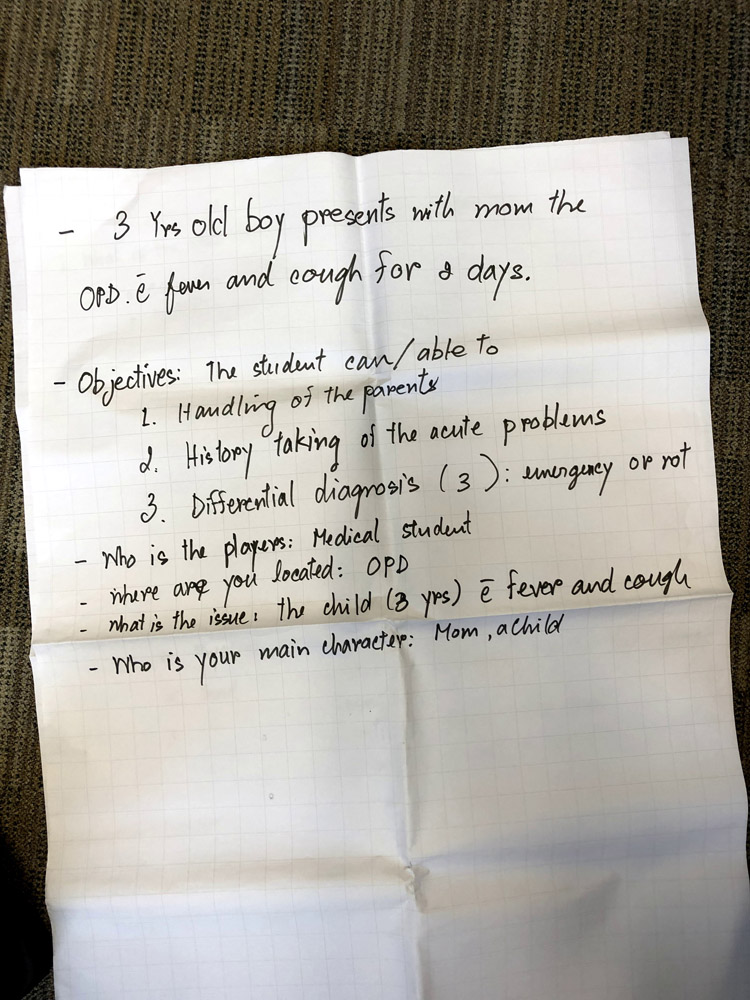 - 3 Yrs old boy presents with mom the
OPD. c̄ fever and cough for 2 days.
- Objectives: The student can/able to
1. Handling of the parents
2. History taking of the acute problems
3. Differential diagnosis (3): emergency or not
- Who is the players: Medical student
- where are you located: OPD
- what is the issue: the child (3 yrs) c̄ fever and cough
- Who is your main character: Mom, a child